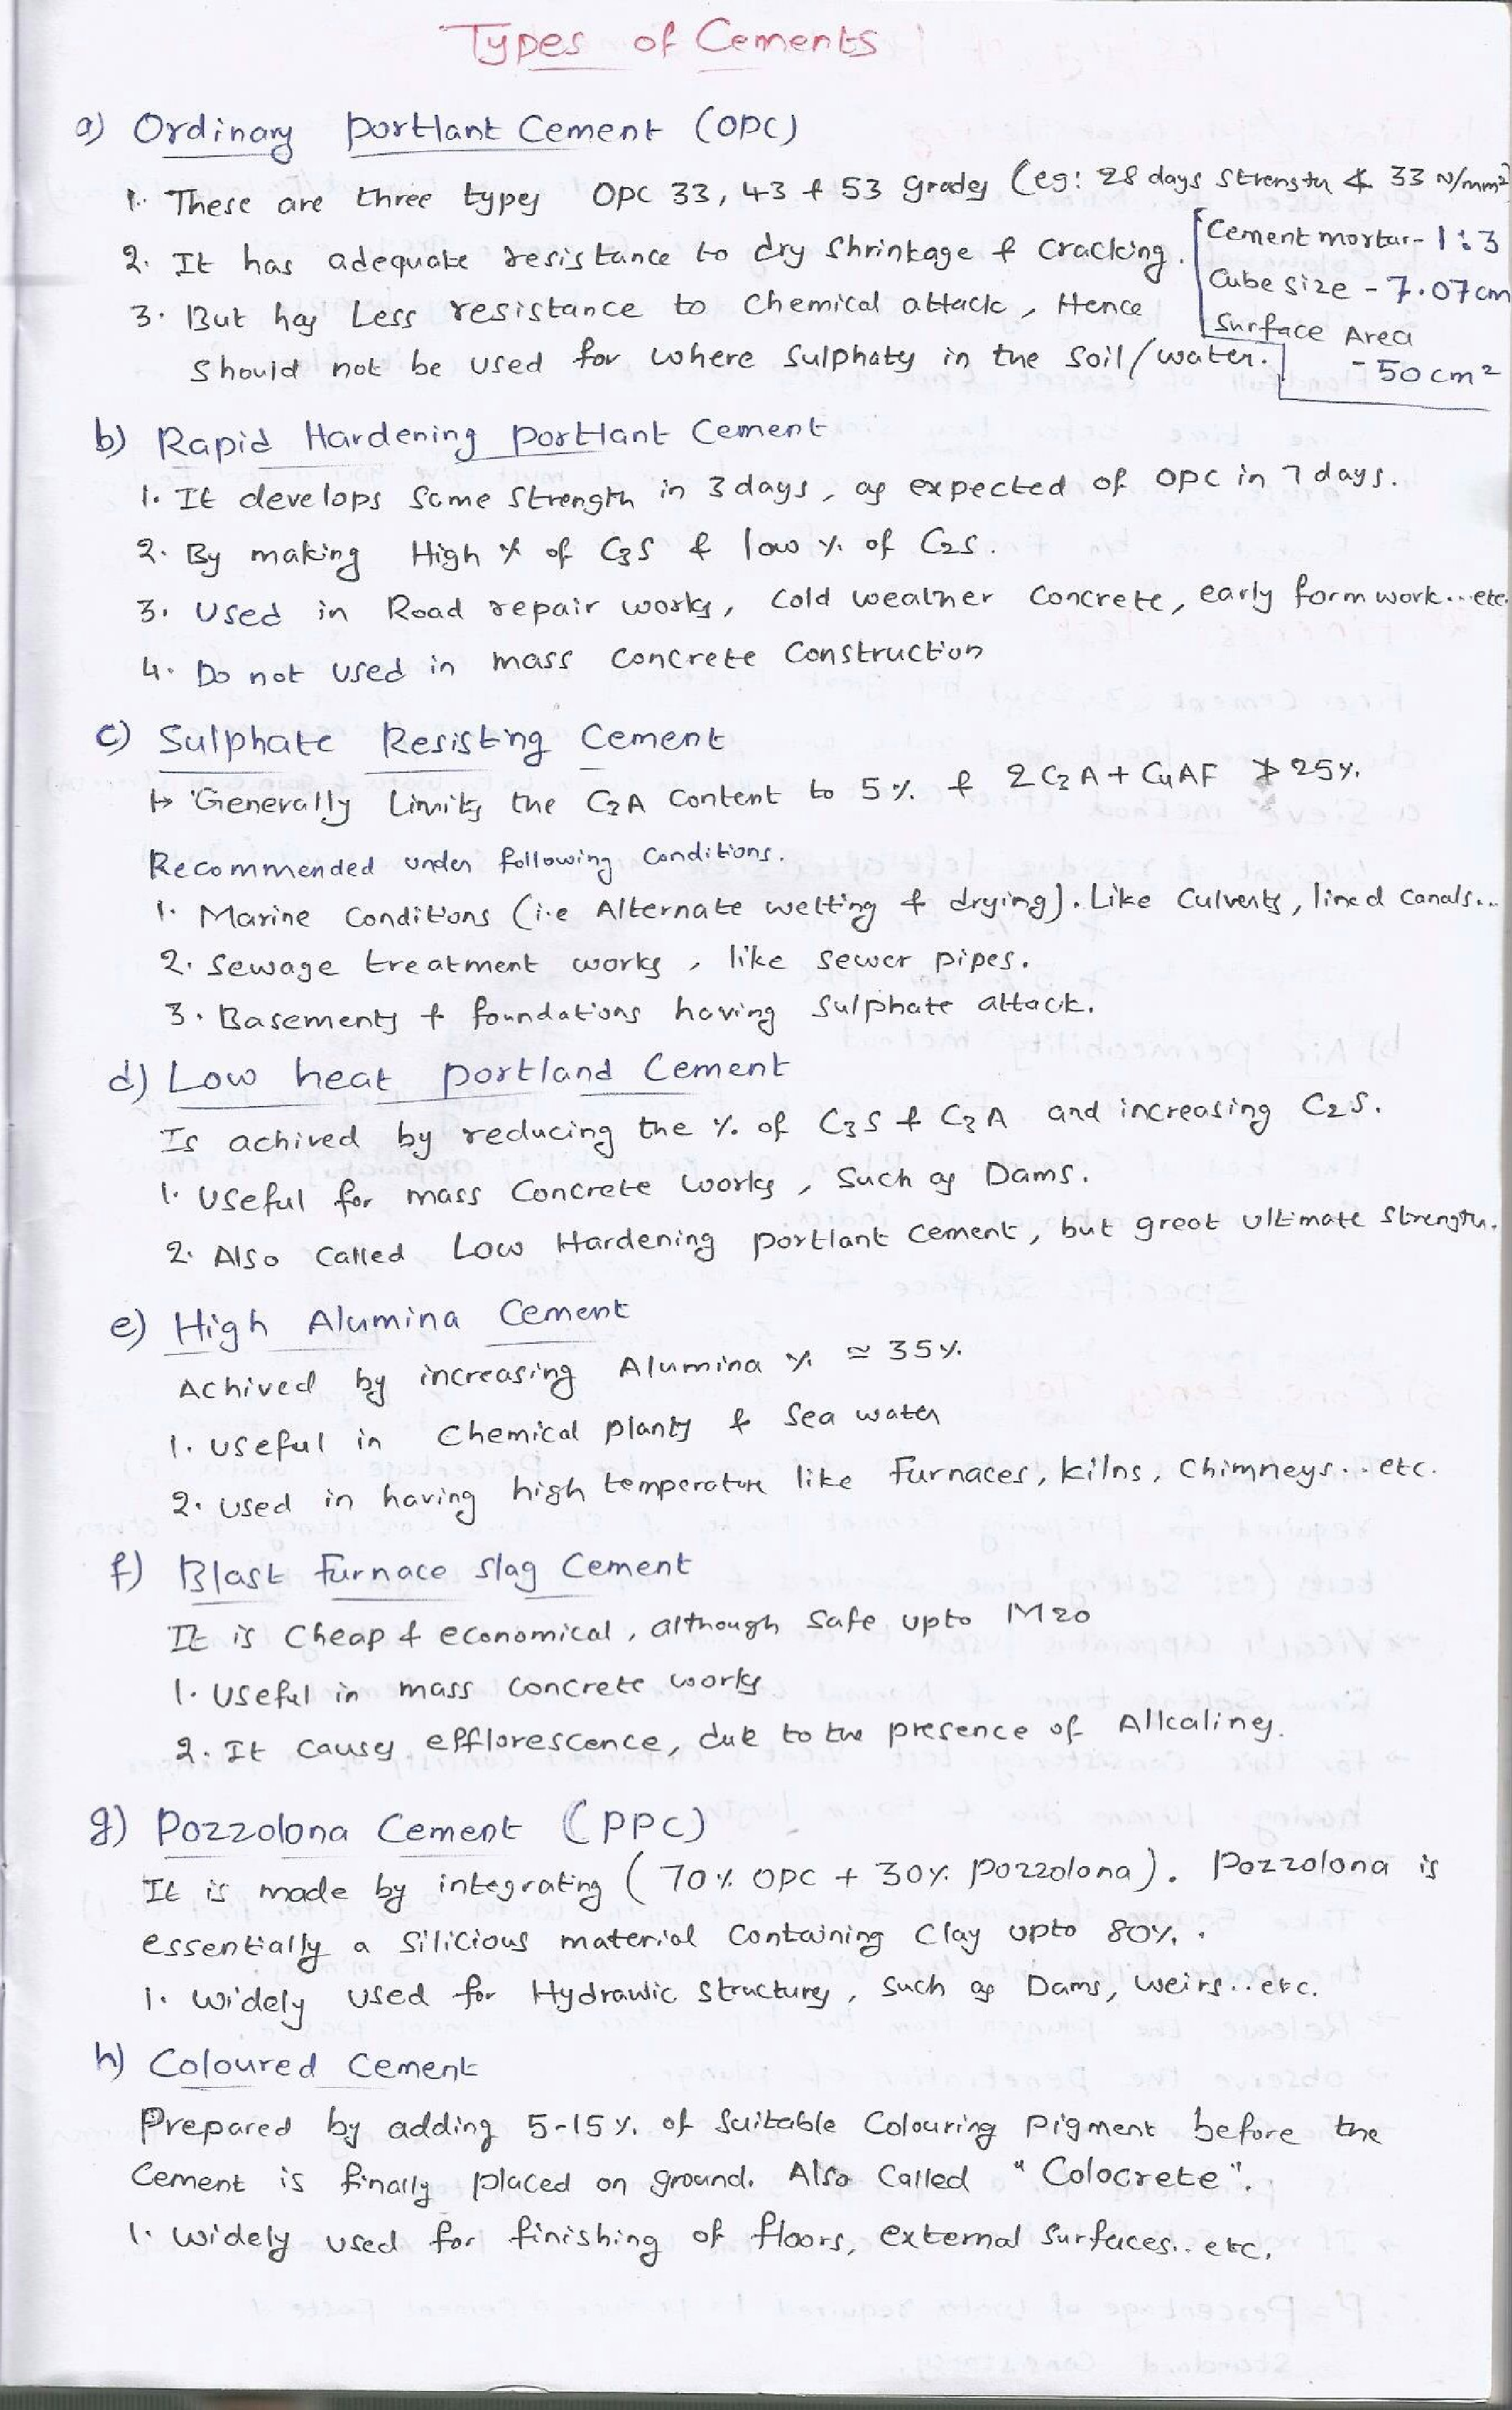 Types of Cements
a) Ordinary Portlant Cement (OPC)
1. These are three types OPC 33, 43 & 53 grades (eg: 28 days Strength ≮ 33 N/mm²
2. It has adequate resistance to dry Shrinkage & Cracking.
Cement mortar - 1:3
Cube size - 7.07cm
Surface Area
- 50 cm²
3. But has Less resistance to Chemical attack, Hence
Should not be used for where Sulphates in the Soil/water.
b) Rapid Hardening Portlant Cement
1. It develops Same Strength in 3 days, as expected of OPC in 7 days.
2. By making High % of C3S & low % of C2S.
3. Used in Road repair works, Cold weather Concrete, early form work...etc.
4. Do not used in mass Concrete Construction
c) Sulphate Resisting Cement
↦ Generally Limits the C3A Content to 5% & 2C3A + C4AF ≯ 25%.
Recommended under following Conditions.
1. Marine Conditions (i.e Alternate wetting & drying). Like Culverts, lined Canals...
2. Sewage treatment works, like sewer pipes.
3. Basements & foundations having Sulphate attack.
d) Low heat portland Cement
Is achived by reducing the % of C3S & C3A and increasing C2S.
1. Useful for mass Concrete Works, Such as Dams.
2. Also Called Low Hardening portlant Cement, but great Ultimate Strength.
e) High Alumina Cement
Achived by increasing Alumina % ≃ 35%.
1. useful in Chemical plants & Sea water
2. used in having high temperature like Furnaces, kilns, Chimneys...etc.
f) Blast Furnace Slag Cement
It is Cheap & economical, although Safe upto M20
1. Useful in mass Concrete works
2. It Causes efflorescence, due to the presence of Alkalines.
g) Pozzolona Cement (PPC)
It is made by integrating (70% OPC + 30% Pozzolona). Pozzolona is
essentially a Silicious material Containing Clay upto 80%.
1. Widely used for Hydraulic Structures, Such as Dams, weirs..etc.
h) Coloured Cement
Prepared by adding 5-15% of Suitable Colouring Pigment before the
Cement is finally placed on ground. Also Called "Colocrete".
1. widely used for finishing of floors, external Surfaces..etc.